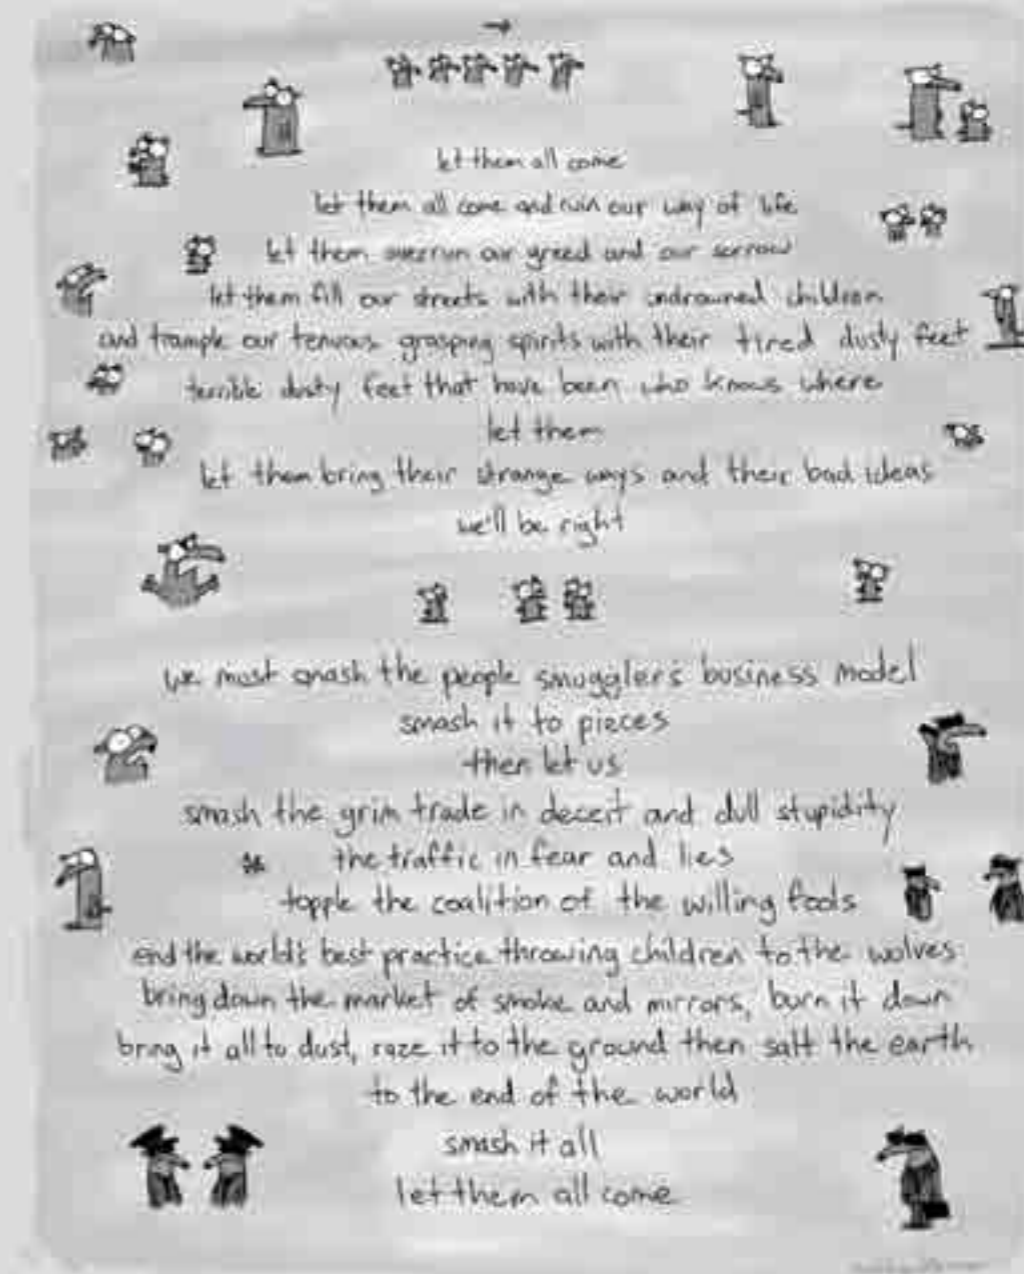 let them all come
let them all come and ruin our way of life
let them overrun our greed and our sorrow
let them fill our streets with their undrowned children
and trample our tenuous grasping spirits with their tired dusty feet
terrible dusty feet that have been who knows where
let them
let them bring their strange ways and their bad ideas
we'll be right
we must smash the people smuggler's business model
smash it to pieces
then let us
smash the grim trade in deceit and dull stupidity
the traffic in fear and lies
topple the coalition of the willing fools
end the world's best practice throwing children to the wolves
bring down the market of smoke and mirrors, burn it down
bring it all to dust, raze it to the ground then salt the earth
to the end of the world
smash it all
let them all come